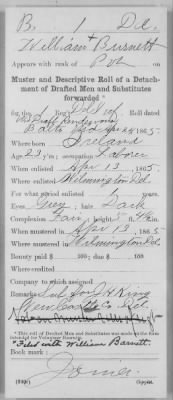 B. 1 Del.
William Burnett
Appears with rank of Pvt on
Muster and Descriptive Roll of a Detachment of Drafted Men and Substitutes
forwarded *
for the 1 Reg't Del. Vol. Roll dated
Balto Md Apr 1865.
Where born Ireland
Age 23 y'rs; occupation Laborer
When enlisted Apr 13, 1865
Where enlisted Wilmington Del.
For what period enlisted 1 years.
Eyes Grey; hair Dark
Complexion Fair; height 5 ft. in.
When mustered in Apr 13, 1865
Where mustered in Wilmington Del.
Bounty paid $ 100; due $ 100
Where credited
Company to which assigned
Remarks: Sub for H King
New Castle Co. Del.
* This roll of Drafted Men and Substitutes was made on the form intended for Volunteer Recruits.
* Filed with William Barnett.
Book mark:
Jones
Copyist.